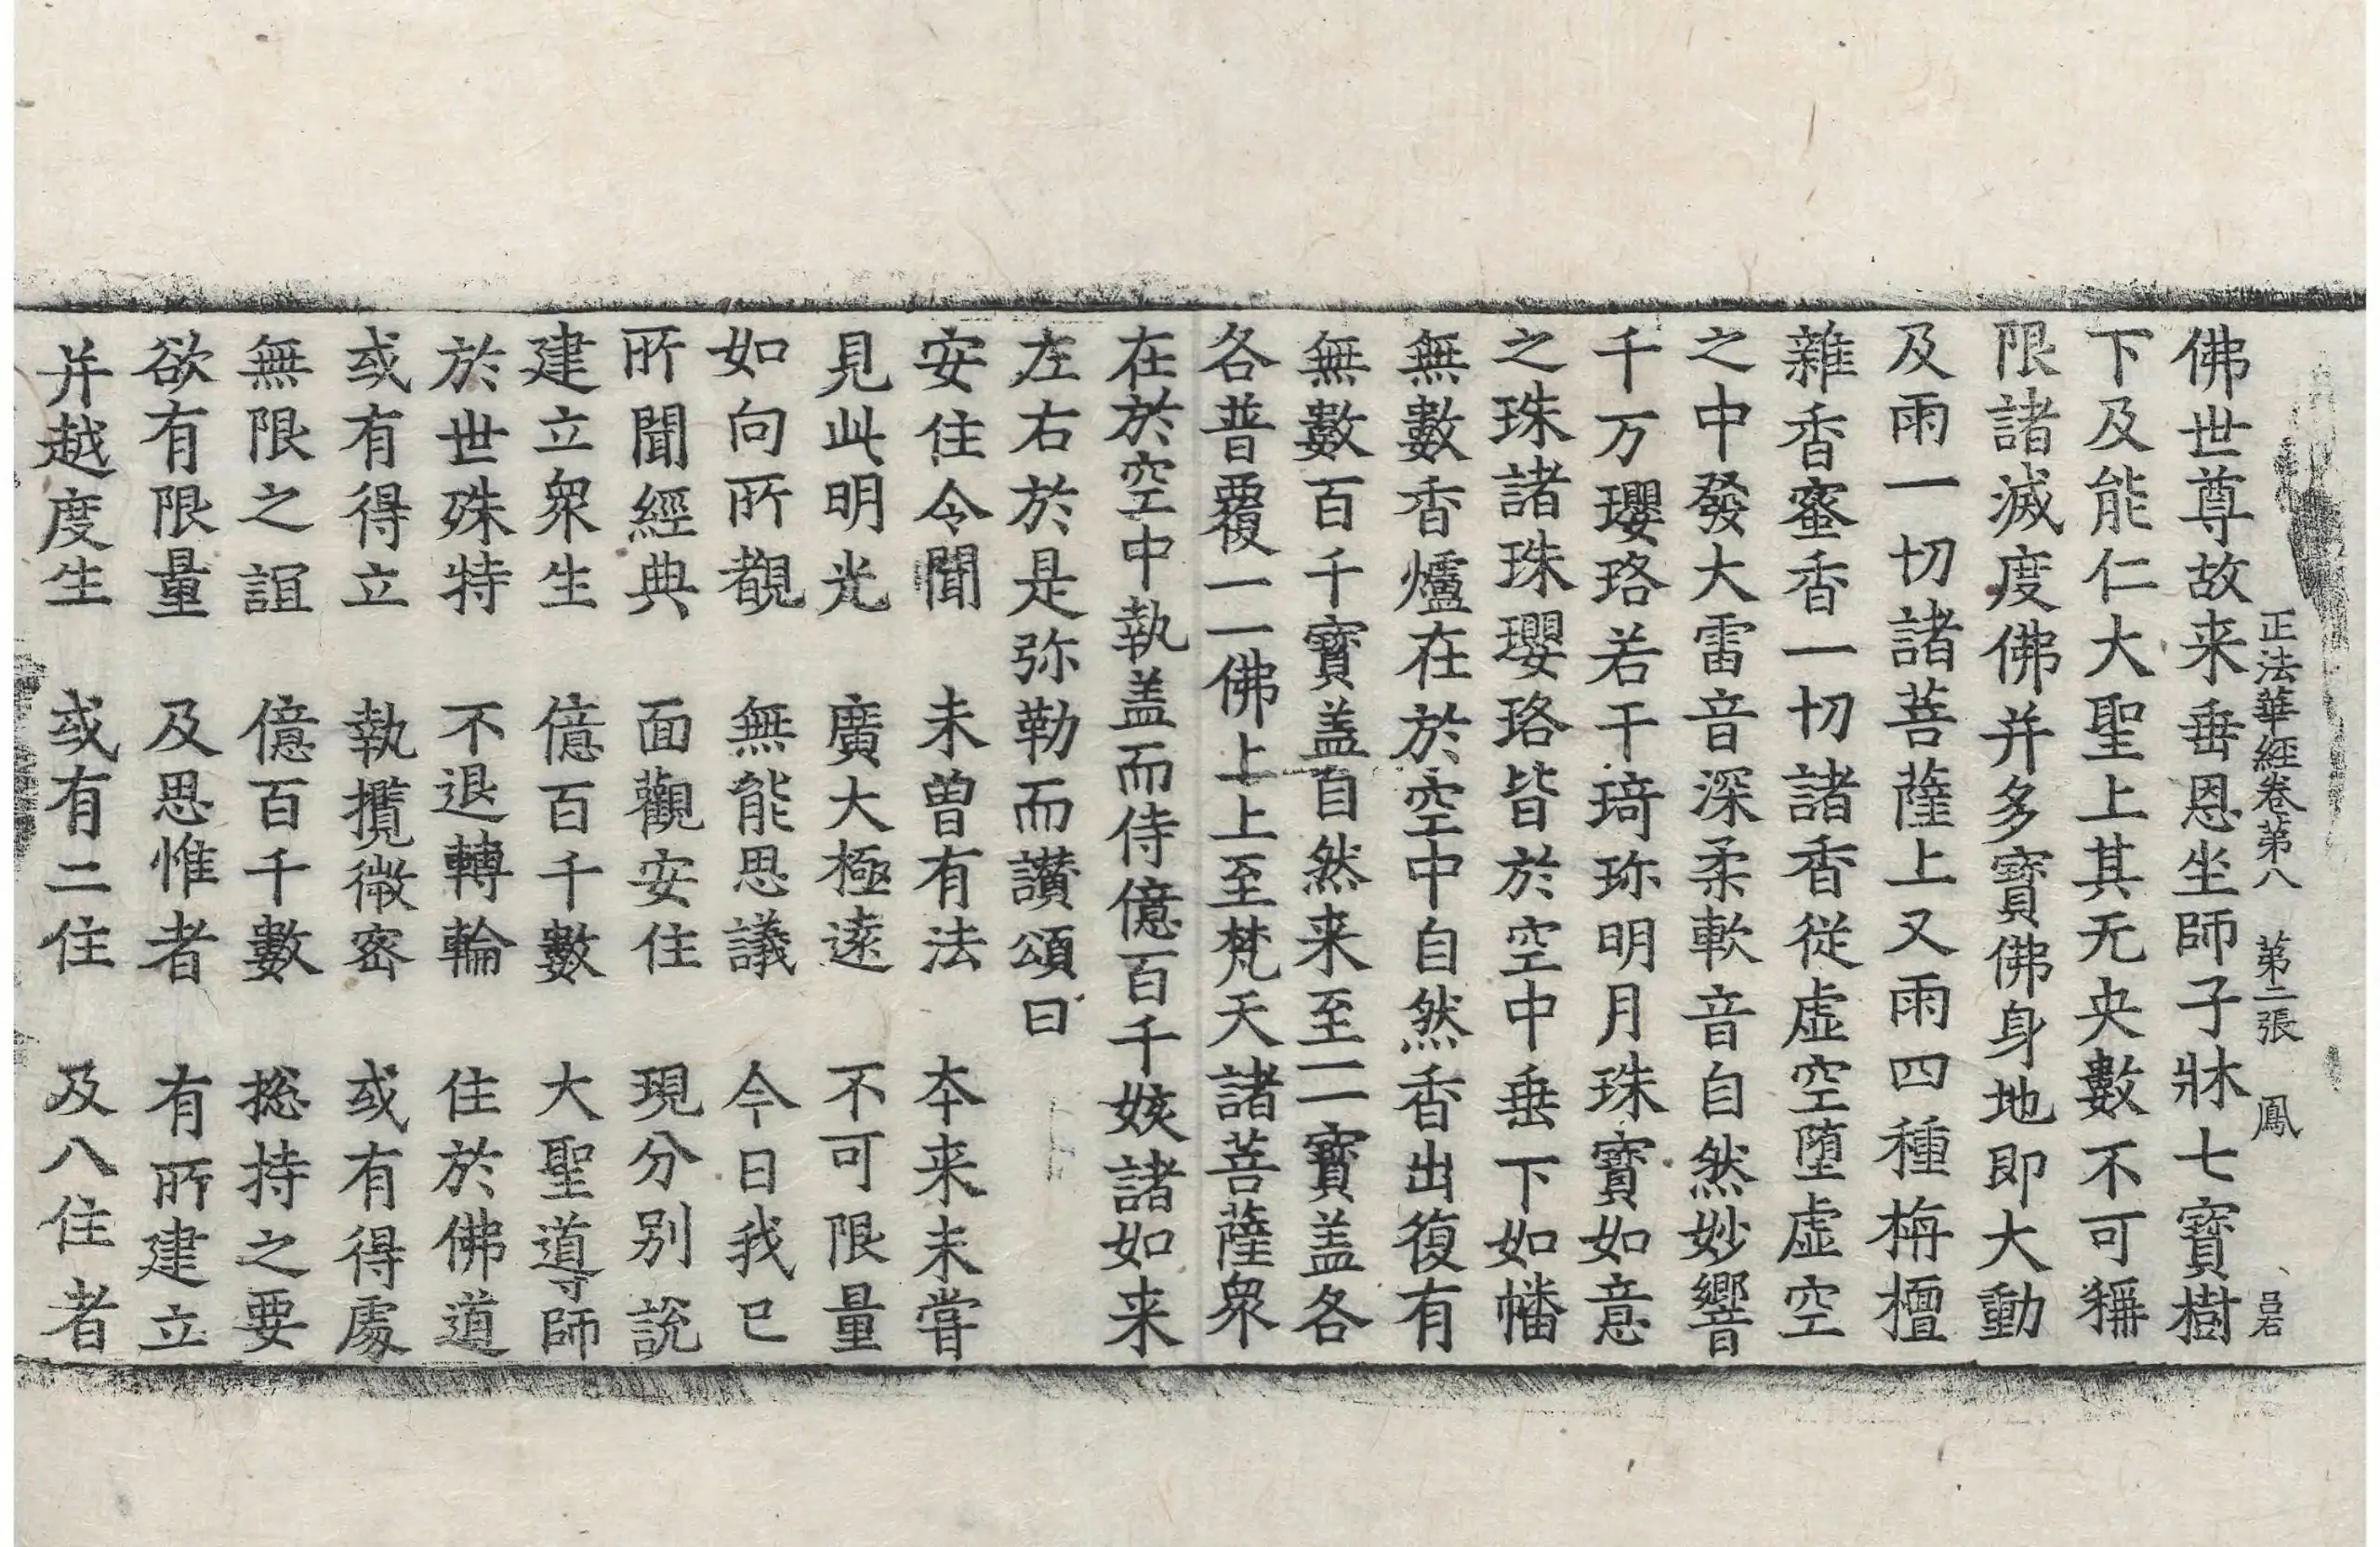 正法華經卷第八 第二張 鳳 吕右
佛世尊故来垂恩坐師子牀七寶樹
下及能仁大聖上其无央數不可稱
限諸滅度佛并多寶佛身地即大動
及雨一切諸菩薩上又雨四種栴檀
雜香蜜香一切諸香從虛空墮虛空
之中發大雷音深柔軟音自然妙響
千万瓔珞若干琦珎明月珠寶如意
之珠諸珠瓔珞皆於空中垂下如幡
無數香爐在於空中自然香出復有
無數百千寶盖自然来至一一寶盖各
各普覆一一佛上上至梵天諸菩薩衆
在於空中執盖而侍億百千姟諸如来
左右於是弥勒而讃頌曰
安住令聞 未曽有法 本来未甞
見此明光 廣大極遠 不可限量
如向所覩 無能思議 今日我已
所聞經典 面觀安住 現分别說
建立衆生 億百千數 大聖導師
於世殊特 不退轉輪 住於佛道
或有得立 執攬微密 或有得處
無限之誼 億百千數 捴持之要
欲有限量 及思惟者 有所建立
并越度生 或有二住 及八住者